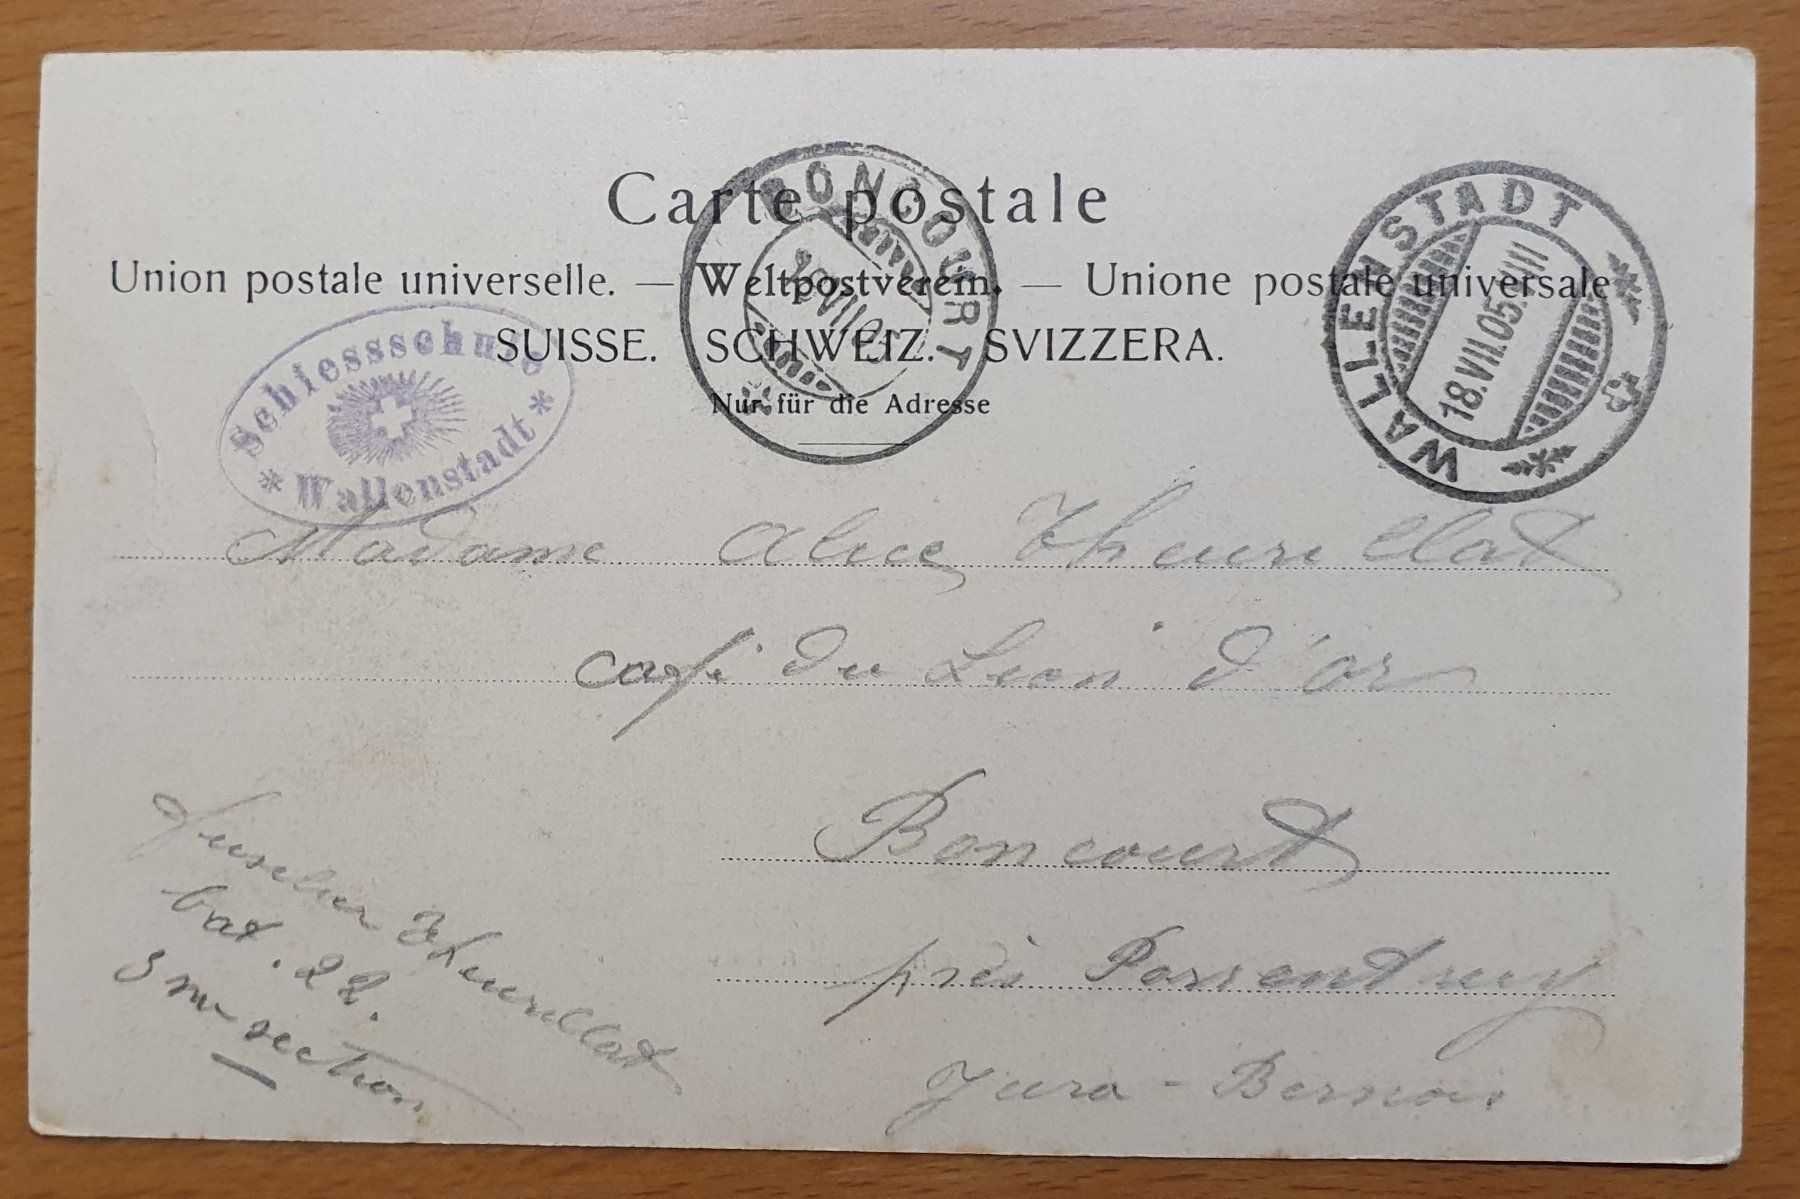 Carte postale
Union postale universelle. — Weltpostverein. — Unione postale universale
SUISSE. SCHWEIZ. SVIZZERA.
Nur für die Adresse
BONCOURT
VII.05
WALLENSTADT
18.VII.05. VIII
Schiessschule
* Wallenstadt *
Madame Alice Theurillat
café du Lion d'or
Boncourt
près Porrentruy
Jura - Bernois
Theurillat
bat. 22.
3me section